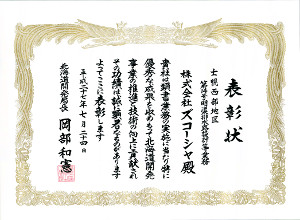 表彰状
士幌西部地区
株式会社 ズコーシャ殿
貴社は頭書業務の実施に当たり特に
優秀な成果を収めもって北海道開発
事業の推進と技術の向上に貢献され
その功績は誠に顕著なものがあります
よってここに表彰します
平成二十七年七月二十四日
北海道開発局長 岡部和憲